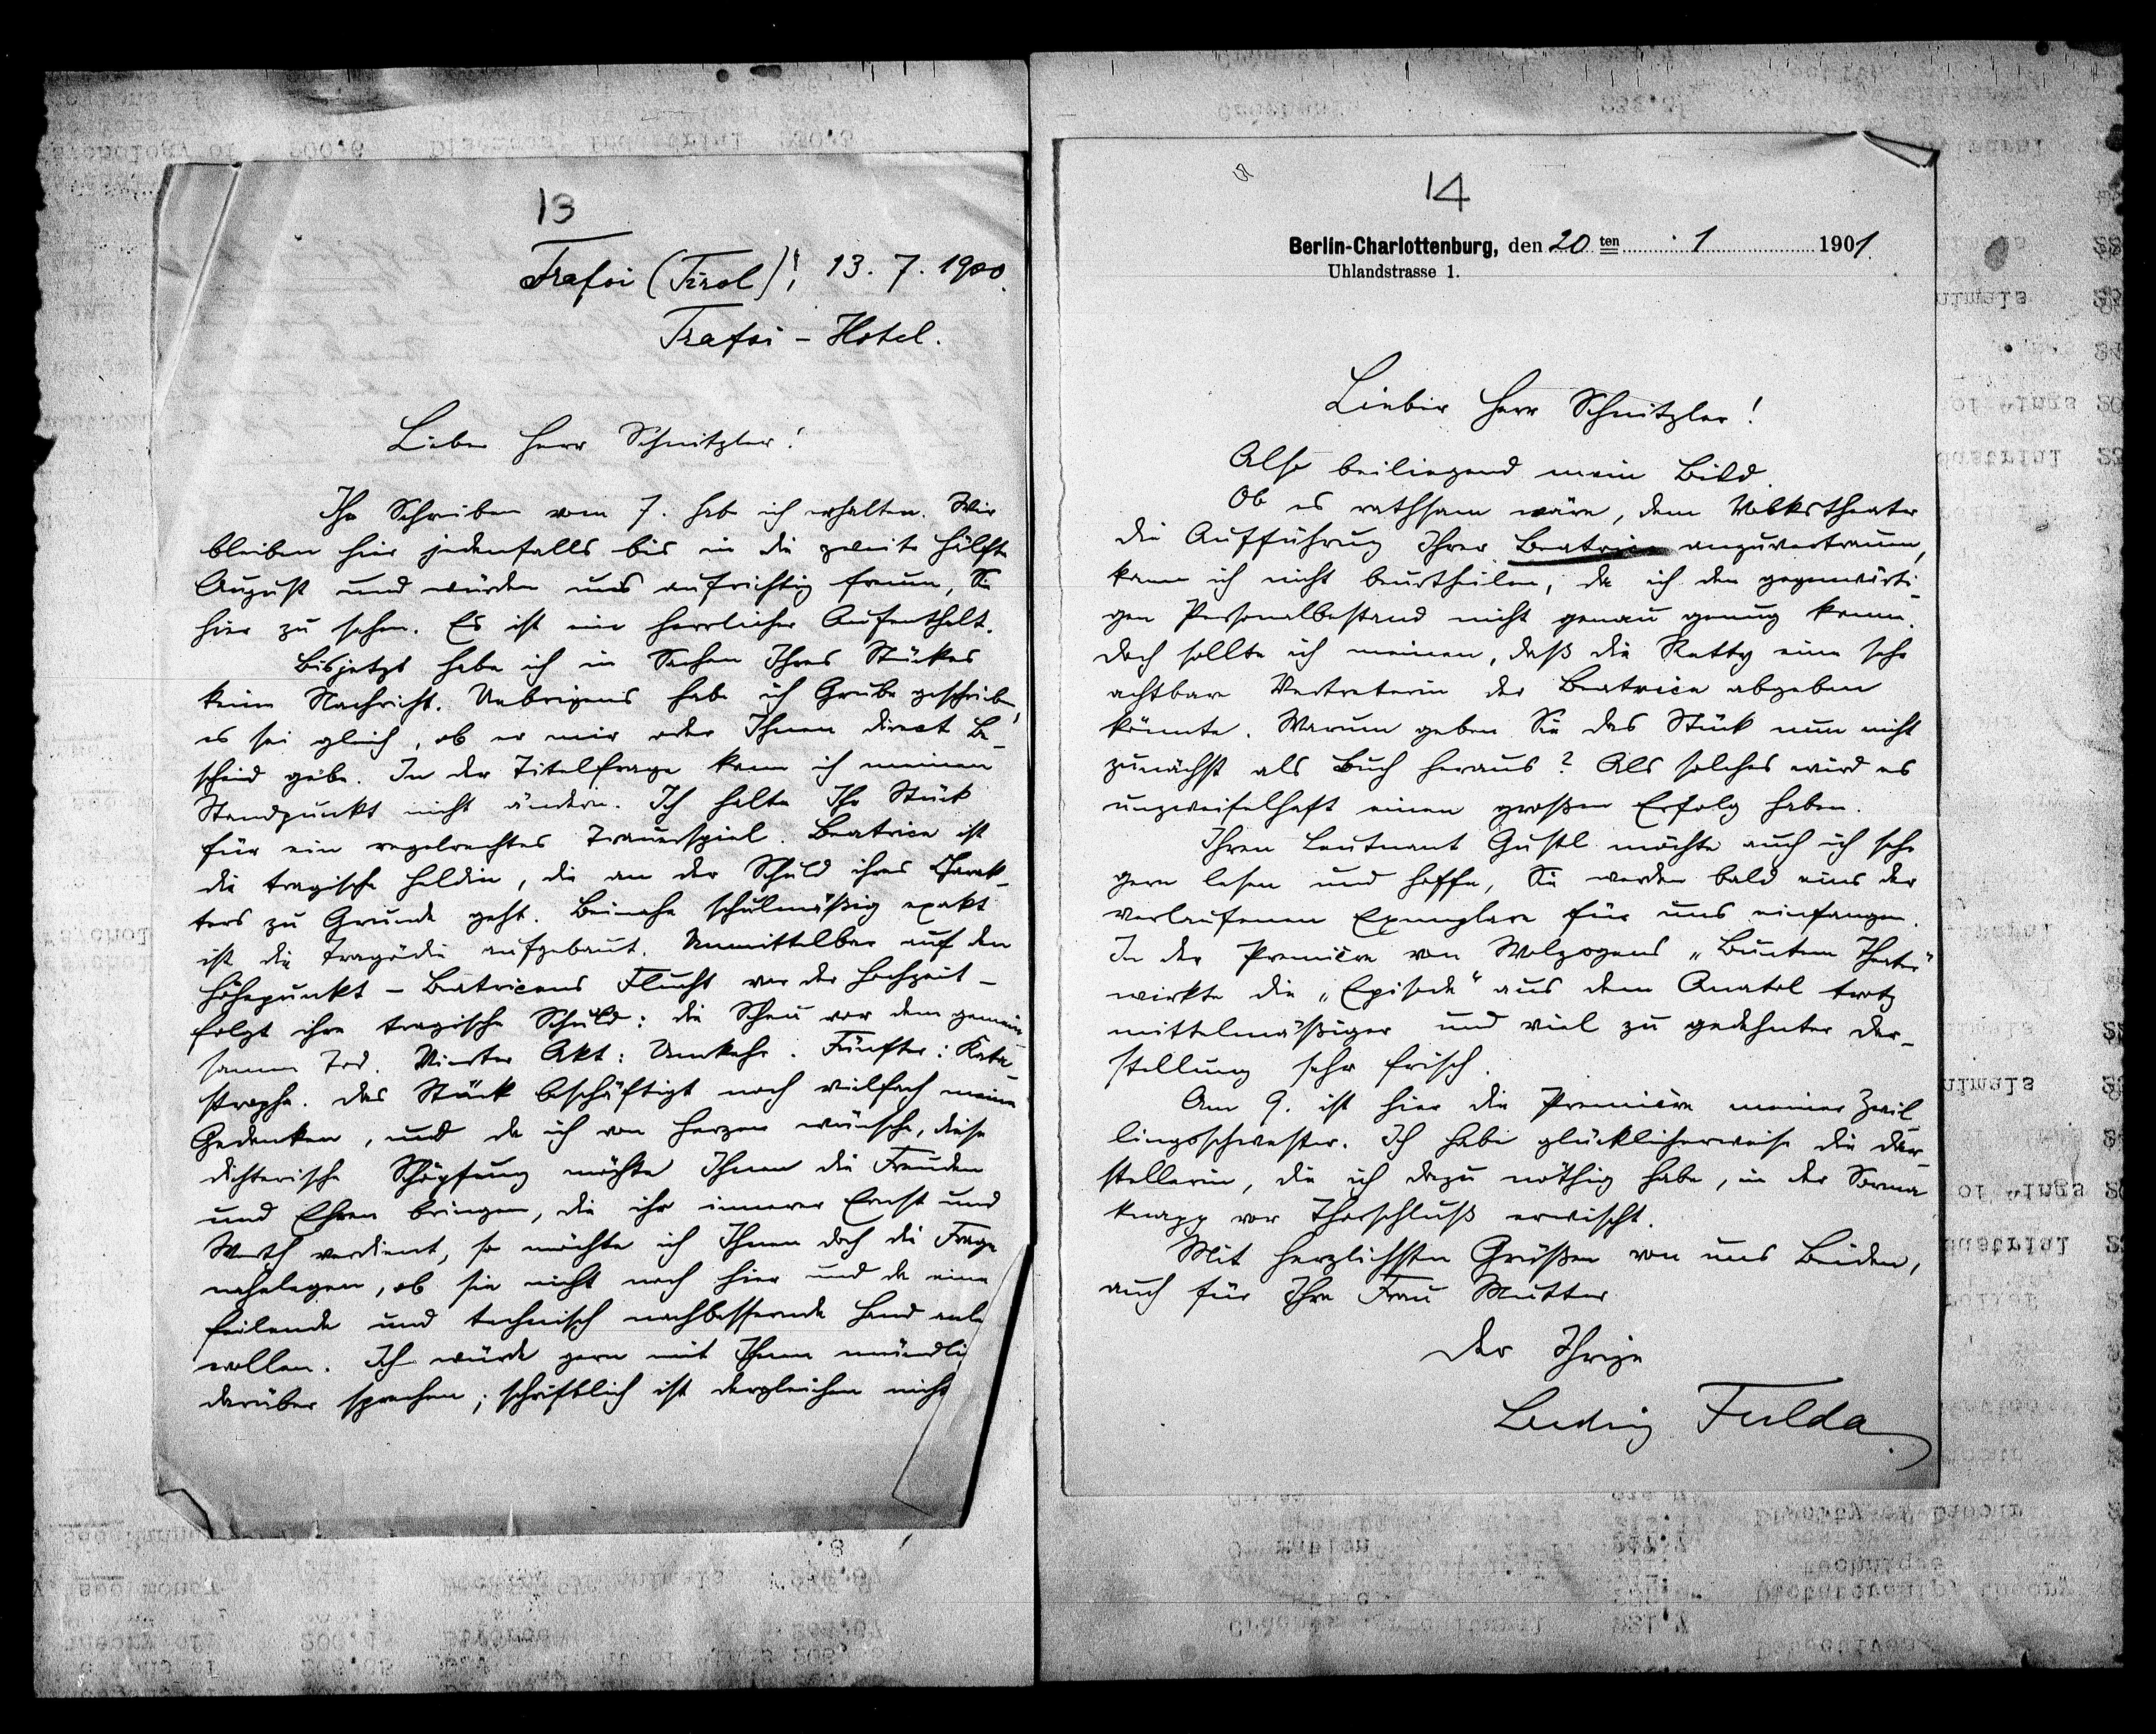 13
Trafoi (Tirol), 13. 7. 1900.
Trafoi-Hotel.
Lieber Herr Schnitzler!
Ihr Schreiben vom 7. hab ich erhalten. Wir
bleiben hier jedenfalls bis in die zweite Hälfte
August und würden uns aufrichtig freuen, Sie
hier zu sehen. Es ist ein herrlicher Aufenthalt.
Bisjetzt habe ich in Sachen Ihres Stückes
keine Nachricht. Uebrigens hab ich Grube geschrieben,
es sei gleich, ob er mir oder Ihnen direct Be-
scheid gebe. In der Titelfrage kann ich meinen
Standpunkt nicht ändern. Ich halte Ihr Stück
für ein regelrechtes Trauerspiel. Beatrice ist
die tragische Heldin, die an der Schuld ihres Charak-
ters zu Grunde geht. Beinahe schulmäßig exakt
ist die Tragödie aufgebaut. Unmittelbar auf den
Höhepunkt – Beatricens Flucht vor der Hochzeit –
folgt ihre tragische Schuld: die Scheu vor dem gemein-
samen Tod. Vierter Akt: Umkehr. Fünfter: Kata-
strophe. Das Stück beschäftigt noch vielfach meine
Gedanken, und da ich von Herzen wünsche, diese
dichterische Schöpfung möchte Ihnen die Freuden
und Ehren bringen, die ihr innerer Ernst und
Werth verdient, so möchte ich Ihnen doch die Frage
nahelegen, ob sie nicht noch hier und da eine
feilende und technisch nachbessernde Hand anle
wollen. Ich würde gern mit Ihnen mündli
darüber sprechen; schriftlich ist dergleichen nicht
14
Berlin-Charlottenburg, den 20 ten 1 1901.
Uhlandstrasse 1.
Lieber Herr Schnitzler!
Also beiliegend mein Bild.
Ob es rathsam wäre, dem Volkstheater
die Aufführung Ihrer Beatrice anzuvertrauen,
kann ich nicht beurtheilen, da ich den gegenwärti-
gen Personalbestand nicht genau genug kenne.
Doch sollte ich meinen, daß die Retty eine sehr
achtbare Vertreterin der Beatrice abgeben
könnte. Warum geben Sie das Stück nun nicht
zunächst als Buch heraus? Als solches wird es
unzweifelhaft einen großen Erfolg haben.
Ihren Leutnant Gustl möchte auch ich sehr
gern lesen und hoffe, Sie werden bald eins der
verlaufenen Exemplare für uns einfangen.
In der Première von Wolzogens „Buntem Theater"
wirkte die „Episode" aus dem Anatol trotz
mittelmäßiger und viel zu gedehnter Dar-
stellung sehr frisch.
Am 9. ist hier die Première meiner Zwil-
lingsschwester. Ich habe glücklicherweise die Dar-
stellerin, die ich dazu nöthig habe, in der Sorma
knapp vor Thorschluß erwischt.
Mit herzlichsten Grüßen von uns Beiden,
auch für Ihre Frau Mutter
der Ihrige
Ludwig Fulda.